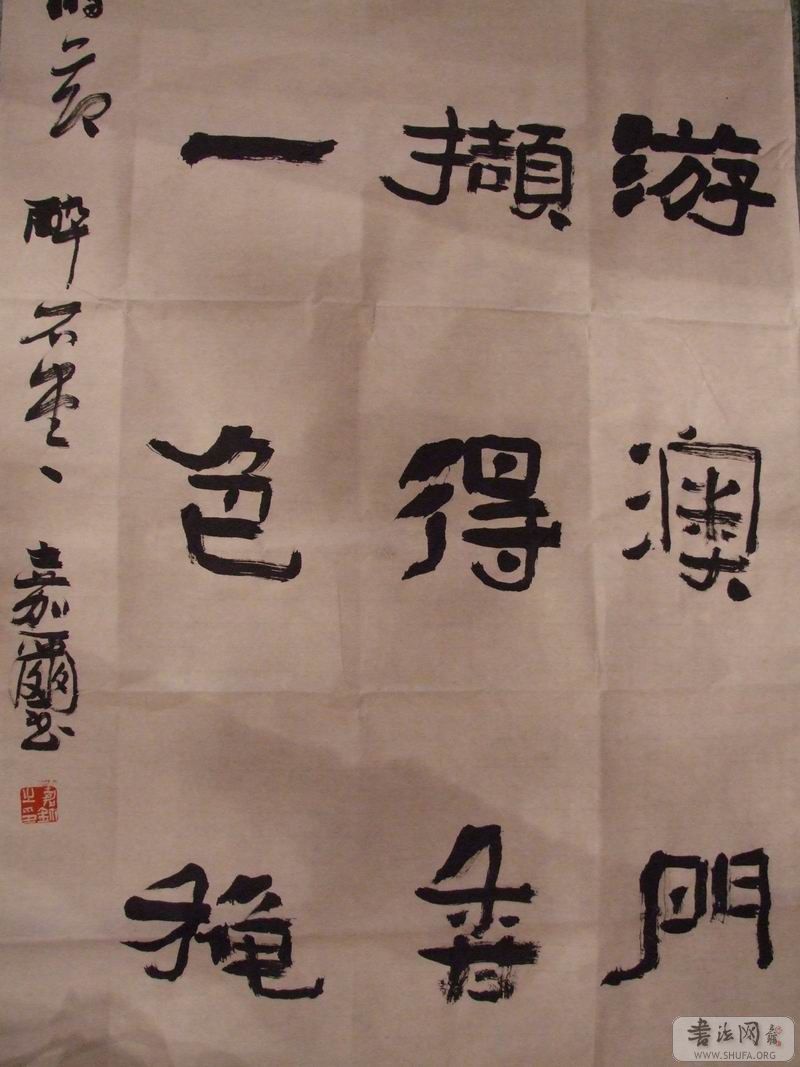 游澳門
擷得香
一色
節 醉石堂 嘉爾書
書法网
WWW.SHUFA.ORG